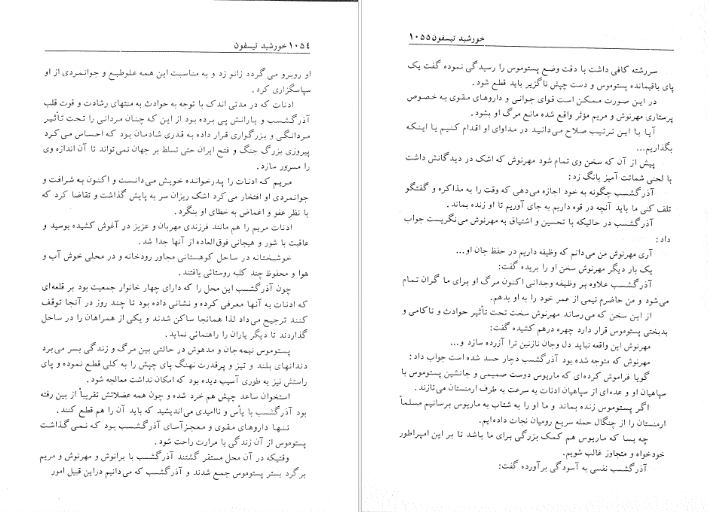 ۱۰۵٤ خورشید تیسفون
او روبرو می گردد زانو زد و به مناسبت این همه علوطبع و جوانمردی از او
سپاسگزاری کرد.
ادنات که در مدتی اندک با توجه به حوادث به منتهای رشادت و قوت قلب
آذرگشسب و یارانش پی برده بود از این که چنان مردانی را تحت تأثیر
مردانگی و بزرگواری قرار داده به قدری شادمان بود که احساس می کرد
پیروزی بزرگ جنگ و فتح ایران حتی تسلط بر جهان نمی‌تواند تا آن اندازه وی
را مسرور سازد.
مریم که ادنات را پدرخوانده خویش می‌دانست و اکنون به شرافت و
جوانمردی او افتخار می کرد اشک ریزان سر به پایش گذاشت و تقاضا کرد که
با نظر عفو و اغماض به خطای او بنگرد.
ادنات مریم را هم مانند فرزندی مهربان و عزیز در آغوش کشیده بوسید و
عاقبت با شور و هیجانی فوق‌العاده از آنها جدا شد.
خوشبختانه در ساحل کوهستانی مجاور رودخانه و در محلی خوش آب و
هوا و محفوظ چند کلبه روستائی یافتند.
چون آذرگشسب این محل را که دارای چهار خانوار جمعیت بود بر قلعه‌ای
که ادنات به آنها معرفی کرده و نشانی داده بود تا چند روز در آنجا توقف
کنند ترجیح می‌داد لذا همانجا ساکن شدند و یکی از همراهان را در ساحل
گذاردند تا دیگر یاران را راهنمائی نماید.
پستوموس نیمه‌جان و مدهوش در حالتی بین مرگ و زندگی بسر می‌برد
دندانهای بلند و تیز و پرقدرت نهنگ پای چپش را به کلی قطع نموده و پای
راستش نیز به طوری آسیب دیده بود که امکان نداشت معالجه شود.
استخوان ساعد چپش هم خرد شده و چون همه عضلاتش تقریباً از بین رفته
بود آذرگشسب با یأس و ناامیدی می‌اندیشید که باید آن را هم قطع کنند.
تنها داروهای مقوی و معجزآسای آذرگشسب بود که نمی گذاشت
پستوموس از آن زندگی با مرارت راحت شود.
وقتیکه در آن محل مستقر گشتند آذرگشسب با برانوش و مهرنوش و مریم
برگرد بستر پستوموس جمع شدند و آذرگشسب که می‌دانیم دراین قبیل امور
خورشید تیسفون ۱۰۵۵
سررشته کافی داشت با دقت وضع پستوموس را رسیدگی نموده گفت یک
پای باقیمانده پستوموس و دست چپش ناگزیر باید قطع شود.
در این صورت ممکن است قوای جوانی و داروهای مقوی به خصوص
پرستاری مهرنوش و مریم مؤثر واقع شده مانع مرگ او بشود.
آیا با این ترتیب صلاح می‌دانید در مداوای او اقدام کنیم یا اینکه
بگذاریم...
پیش از آن که سخن وی تمام شود مهرنوش که اشک در دیدگانش داشت
با لحنی شماتت آمیز بانگ زد:
آذرگشسب چگونه به خود اجازه می‌دهی که وقت را به مذاکره و گفتگو
تلف کنی ما باید آنچه در قوه داریم به جای آوریم تا او زنده بماند.
آذرگشسب در حالیکه با تحسین و اشتیاق به مهرنوش می‌نگریست جواب
داد:
آری مهرنوش من می‌دانم که وظیفه داریم در حفظ جان او...
یک بار دیگر مهرنوش سخن او را بریده گفت:
آذرگشسب علاوه بر وظیفه وجدانی اکنون مرگ او برای ما گران تمام
می‌شود و من حاضرم نیمی از عمر خود را به او بدهم.
از این سخن که می‌رساند مهرنوش سخت تحت تأثیر حوادث و ناکامی و
بدبختی پستوموس قرار دارد چهره درهم کشیده گفت:
مهرنوش این واقعه نباید دل وجان نازنین ترا آزرده سازد و...
مهرنوش که متوجه شده بود آذرگشسب دچار حسد شده است جواب داد:
گویا فراموش کرده‌ای که ماریوس دوست صمیمی و جانشین پستوموس با
سپاهیان او و عده‌ای از سپاهیان ادنات به سرعت به طرف ارمنستان می‌تازند.
اگر پستوموس زنده بماند و ما او را به شتاب به ماریوس برسانیم مسلماً
ارمنستان را از چنگال حمله سریع رومیان نجات داده‌ایم.
چه بسا که ماریوس هم کمک بزرگی برای ما باشد تا بر این امپراطور
خودخواه و متجاوز غالب شویم.
آذرگشسب نفسی به آسودگی برآورده گفت: